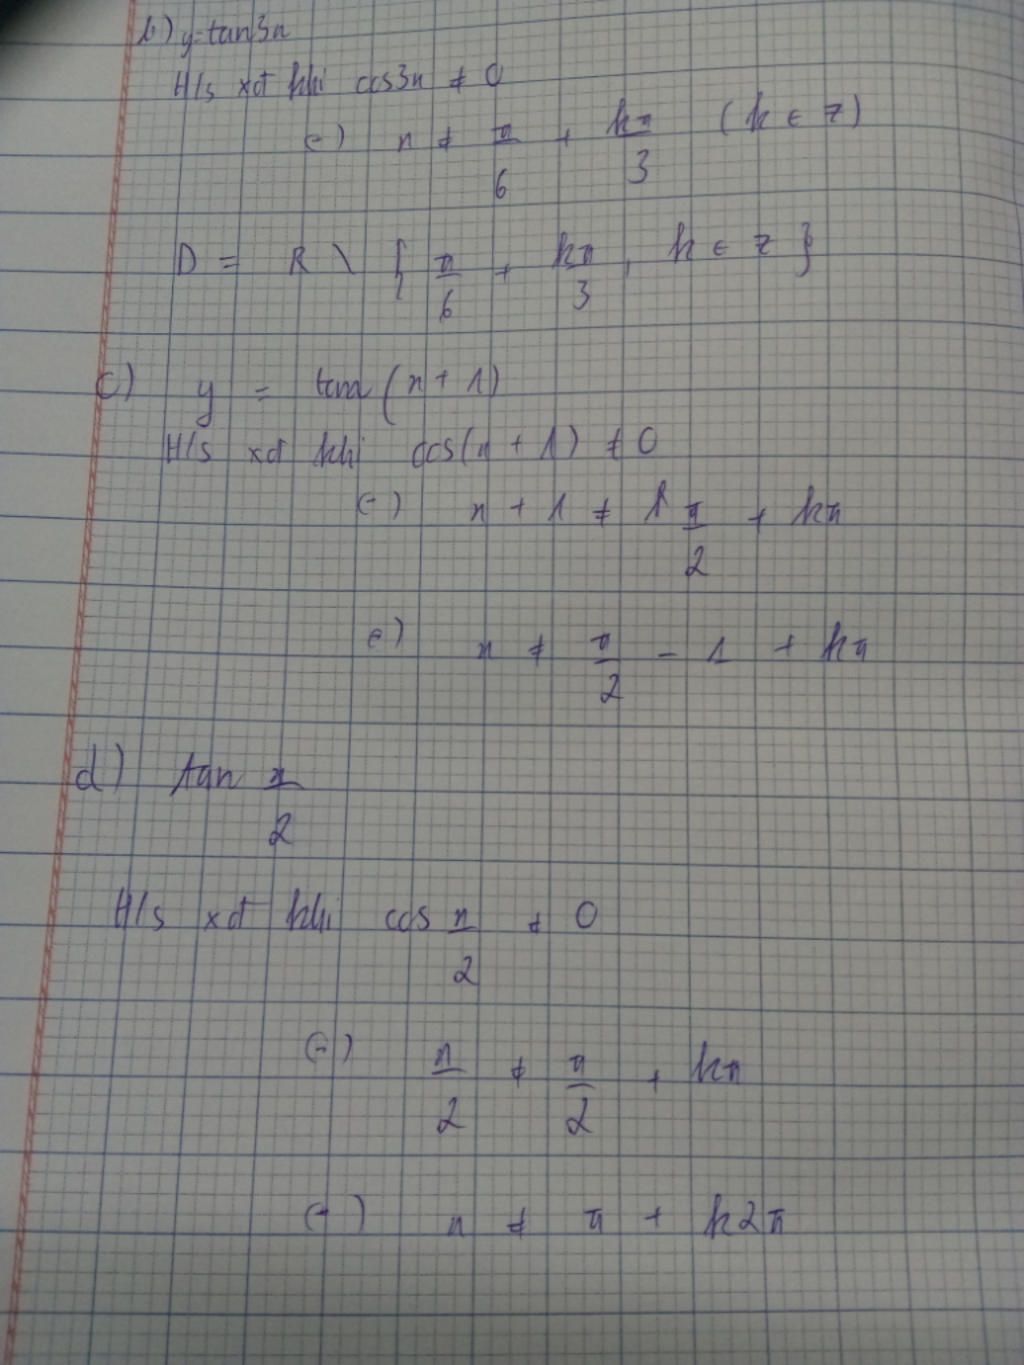 b) y=tan3x
H/s xđ khi cos3x ≠ 0
<=> x ≠ π/6 + kπ/3 (k ∈ Z)
D = R \ { π/6 + kπ/3 , k ∈ Z }
c) y = tan (x + 1)
H/s xđ khi cos(x + 1) ≠ 0
<=> x + 1 ≠ π/2 + kπ
<=> x ≠ π/2 - 1 + kπ
d) tan x/2
H/s xđ khi cos x/2 ≠ 0
<=> x/2 ≠ π/2 + kπ
<=> x ≠ π + k2π